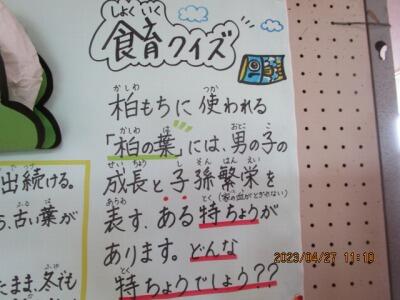 しょく いく
食育クイズ
かしわ つか
柏もちに使われる
かしわ は おとこ こ
「柏の葉」には、男の子の
せい ちょう し そん はん えい
成長と子孫繁栄を
あらわ とく (家の血がとぎれない)
表す、ある特ちょうが
あります。どんな
とく
特ちょうでしょう??
出続ける。
ふる は
う、古い葉が
ふゆ
たまま、冬でも
2023/04/27 11:10